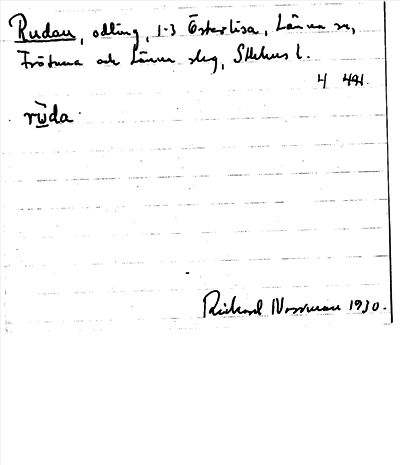 Rudan, odling, 1-3 Österlisa, Länna sn,
Frötuna och Länna skg, Sthlms l.
4 491.
rùda
Rickard Norrman 1930.